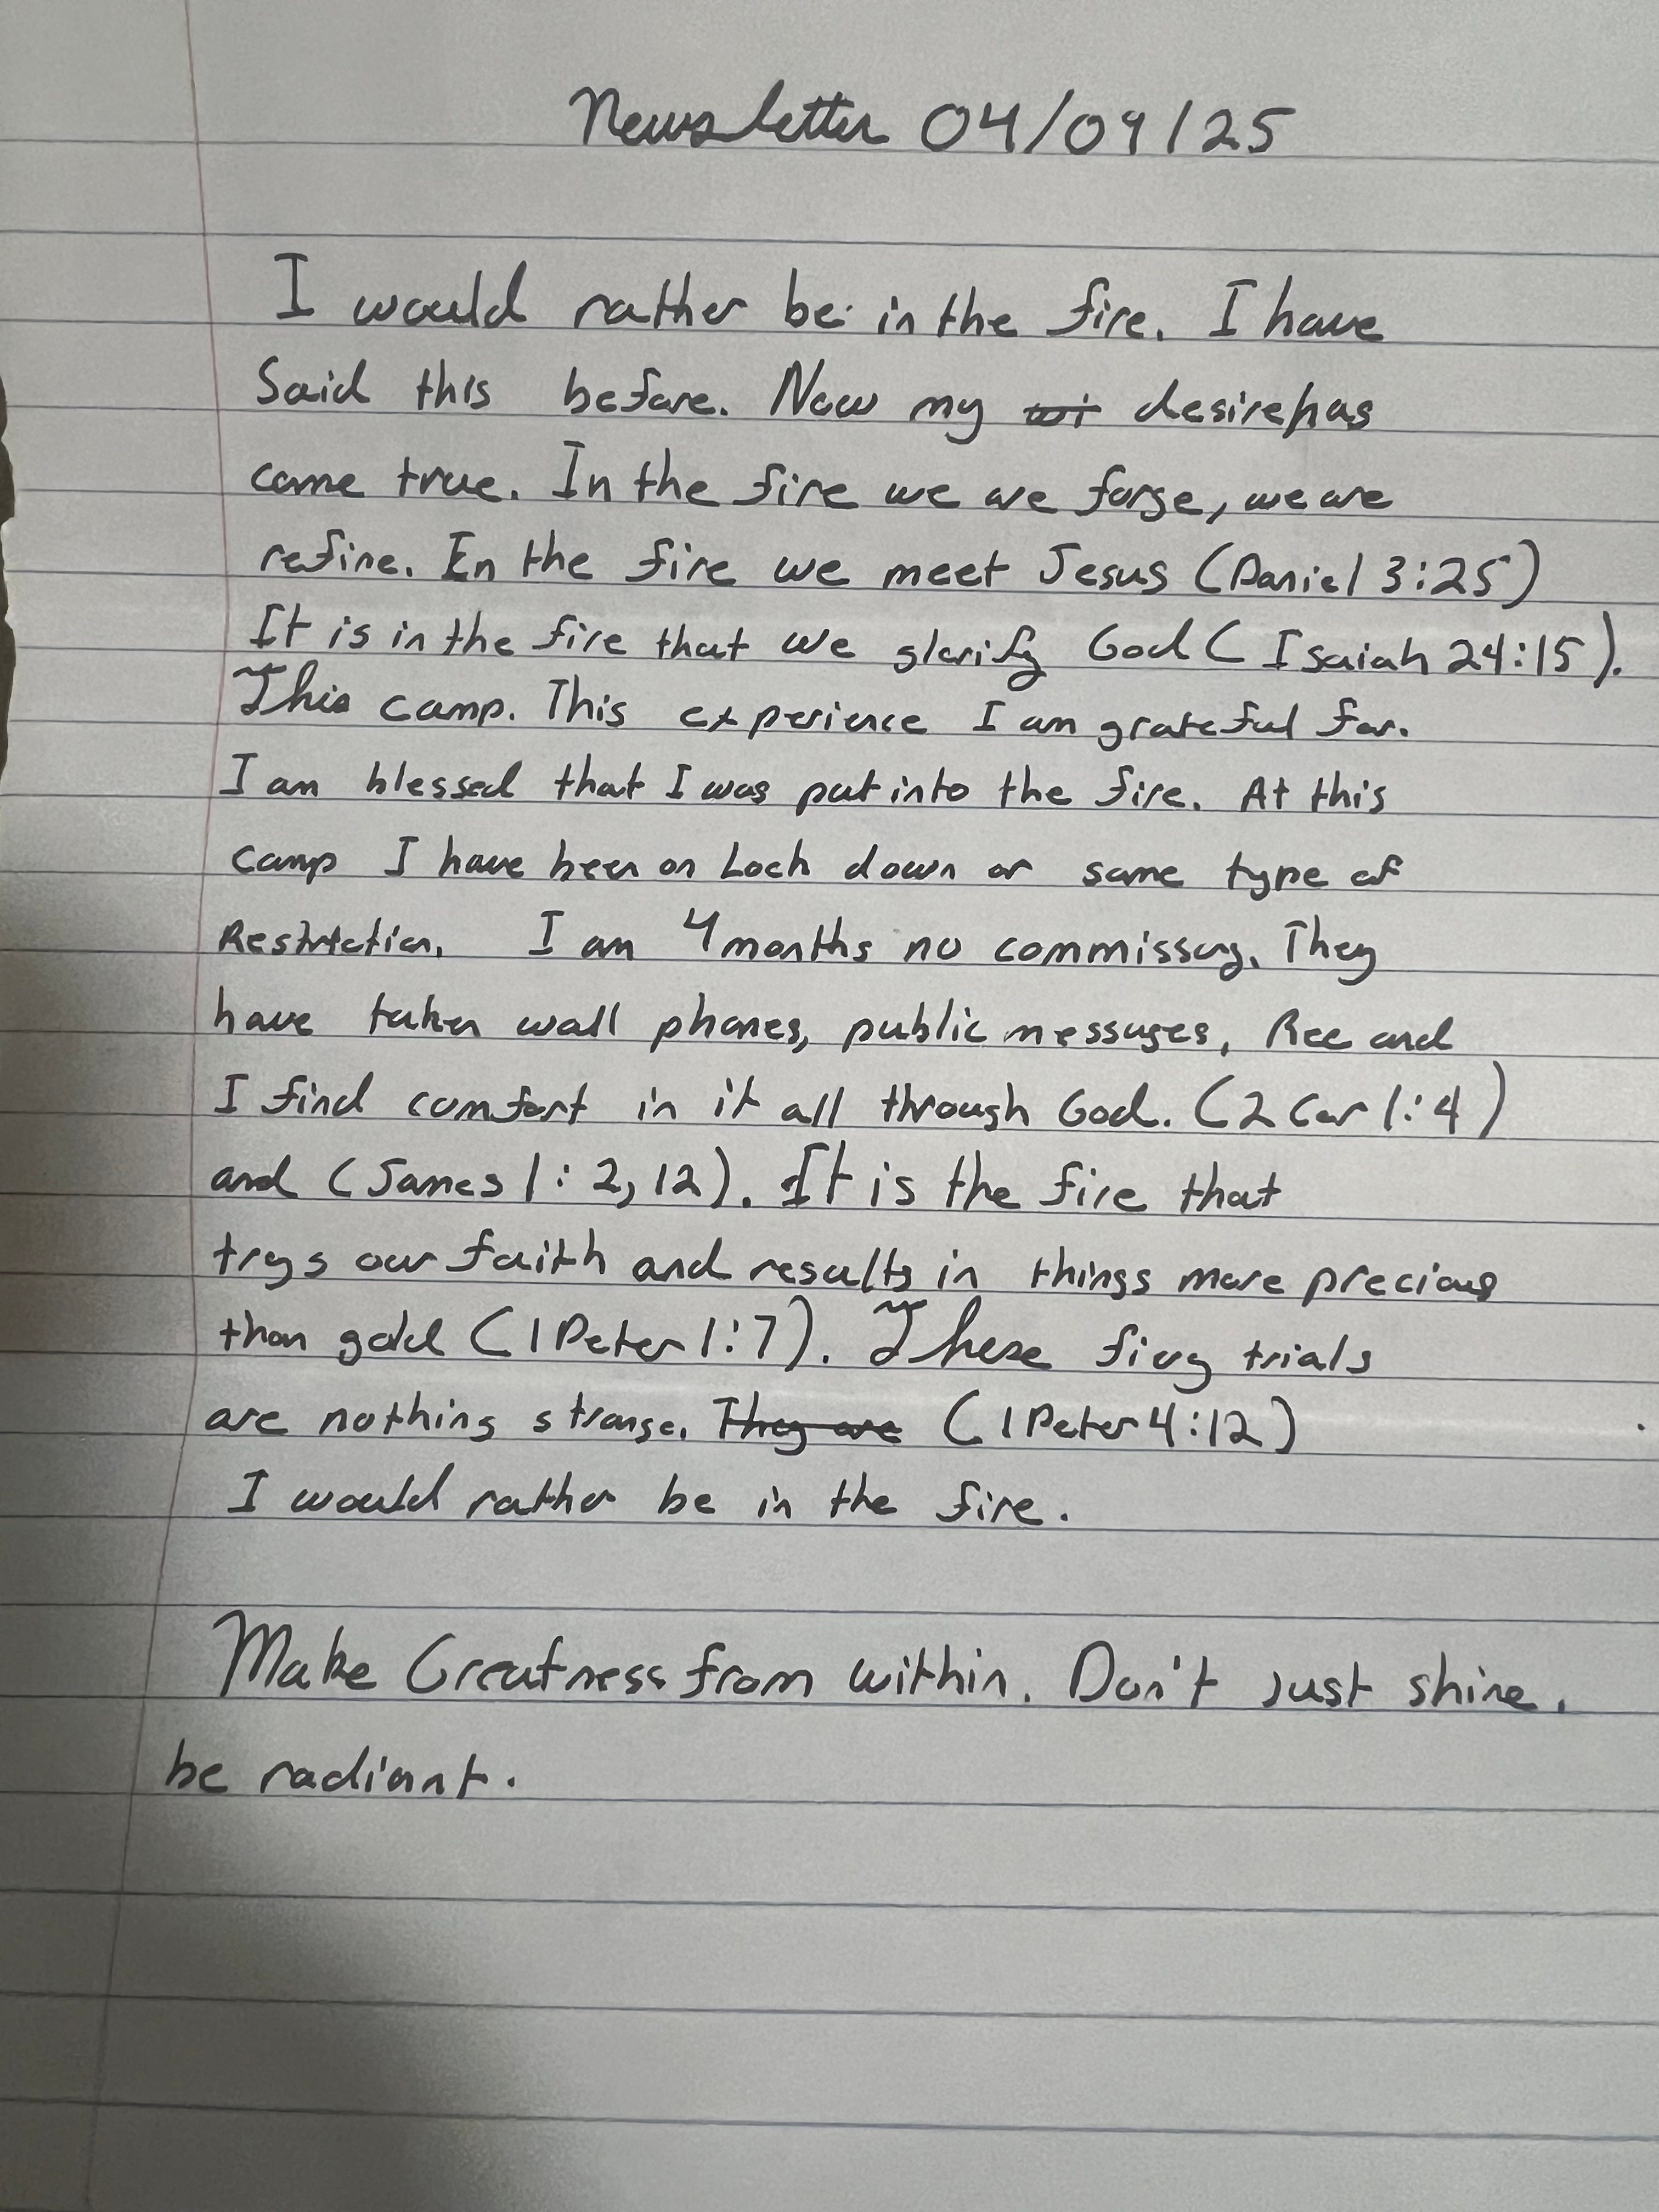 Newsletter 04/09/25
I would rather be in the fire. I have
Said this before. Now my desire has
come true. In the fire we are forge, we are
refine. In the fire we meet Jesus (Daniel 3:25)
It is in the fire that we glorify God (Isaiah 24:15).
This camp. This experience I am grateful for.
I am blessed that I was put into the fire. At this
camp I have been on Lock down or some type of
Restriction. I am 4 months no commissary. They
have taken wall phones, public messages, Rec and
I find comfort in it all through God. (2 Cor 1:4)
and (James 1:2,12). It is the fire that
trys our faith and results in things more precious
than gold (1 Peter 1:7). These firy trials
are nothing strange. They are (1 Peter 4:12)
I would rather be in the fire.
Make Greatness from within. Don't Just shine.
be radiant.